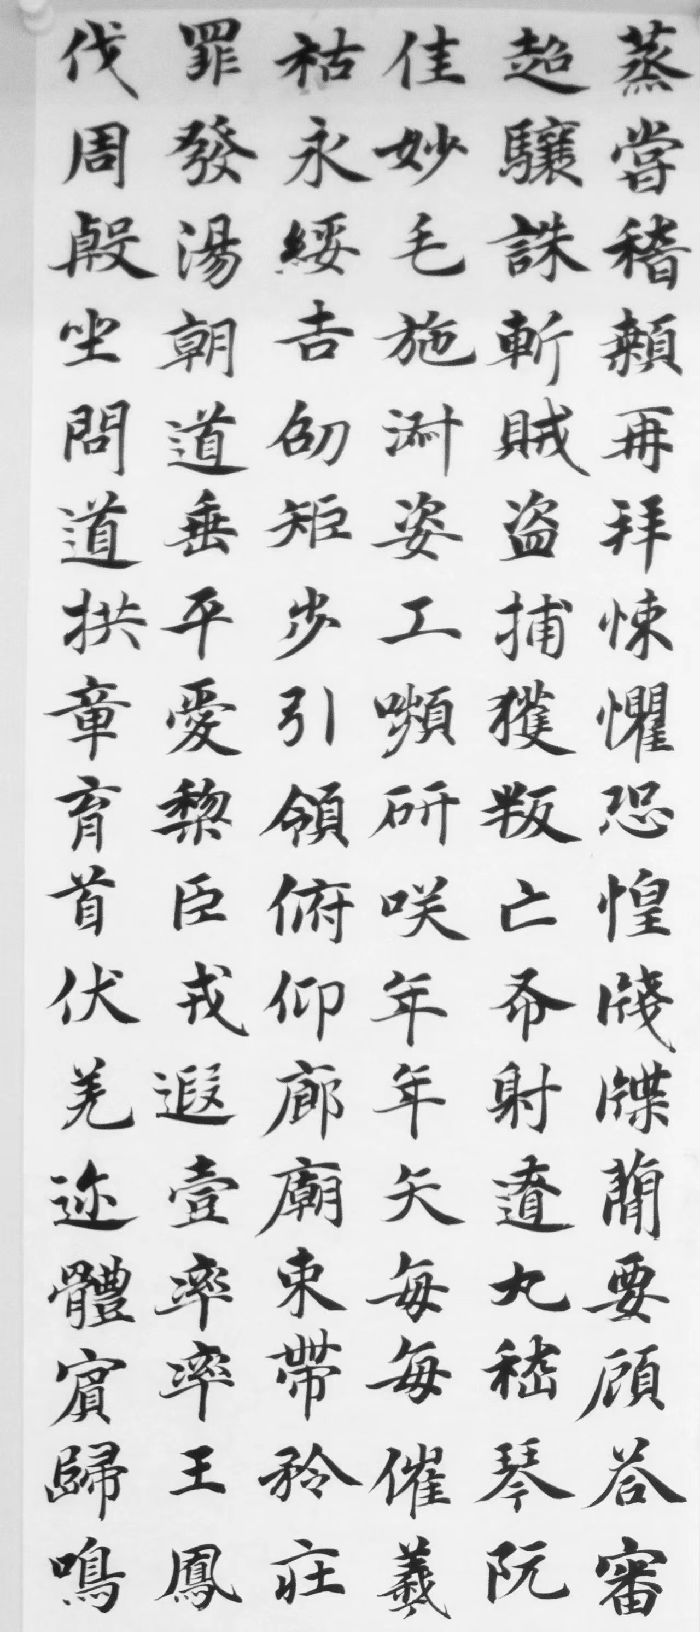 蒸嘗稽顙再拜悚懼恐惶牋牒蕳要顧荅審
超驤誅斬賊盜捕獲叛亡布射遼丸嵇琴阮
佳妙毛施淑姿工嚬研咲年年矢每每催羲
祜永綏吉劭矩步引領俯仰廊廟束帶矜莊
罪發湯朝道垂平愛黎臣戎遐壹率率王鳳
伐周殷坐問道拱章育首伏羌迩體賓歸鳴